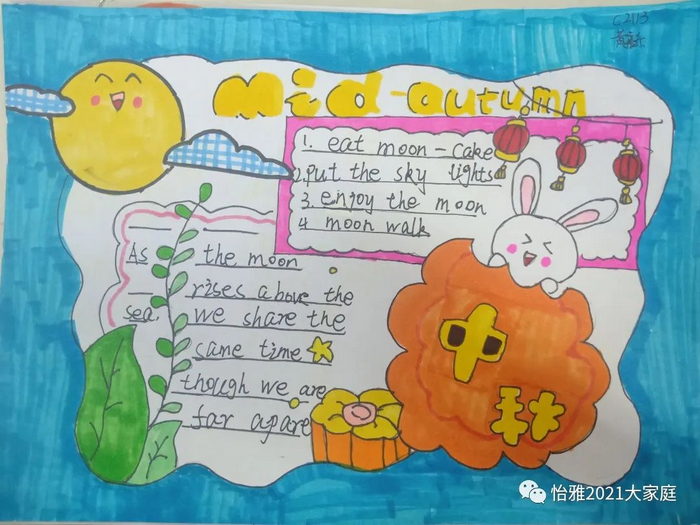 C2113
Mid-autumn
1. eat moon-cake
2. put the sky lights
3. enjoy the moon
4 moon walk
As the moon
rises above the
sea. we share the
same time
though we are
far apare
中秋
怡雅2021大家庭